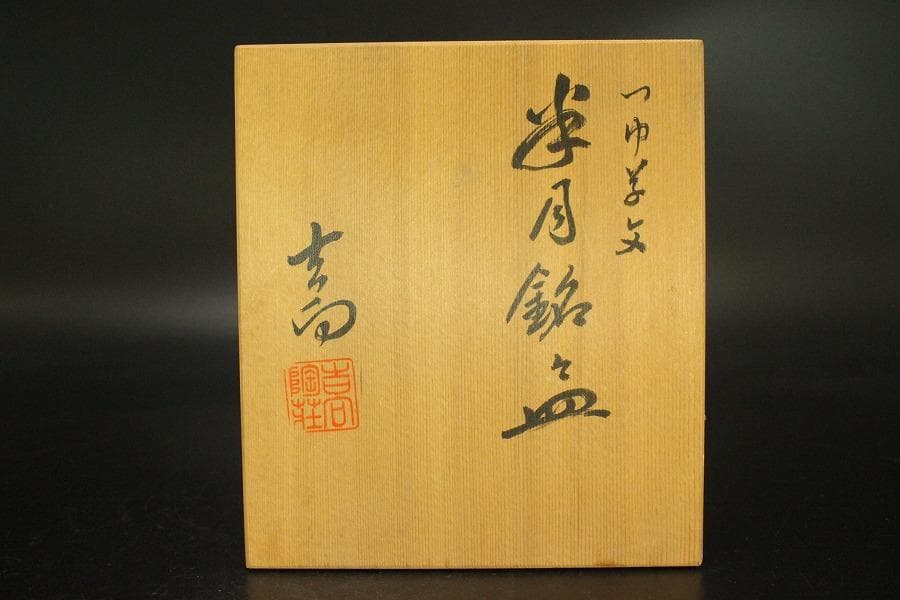 つゆ草文
半月銘々皿
吉向
吉向
陶荘